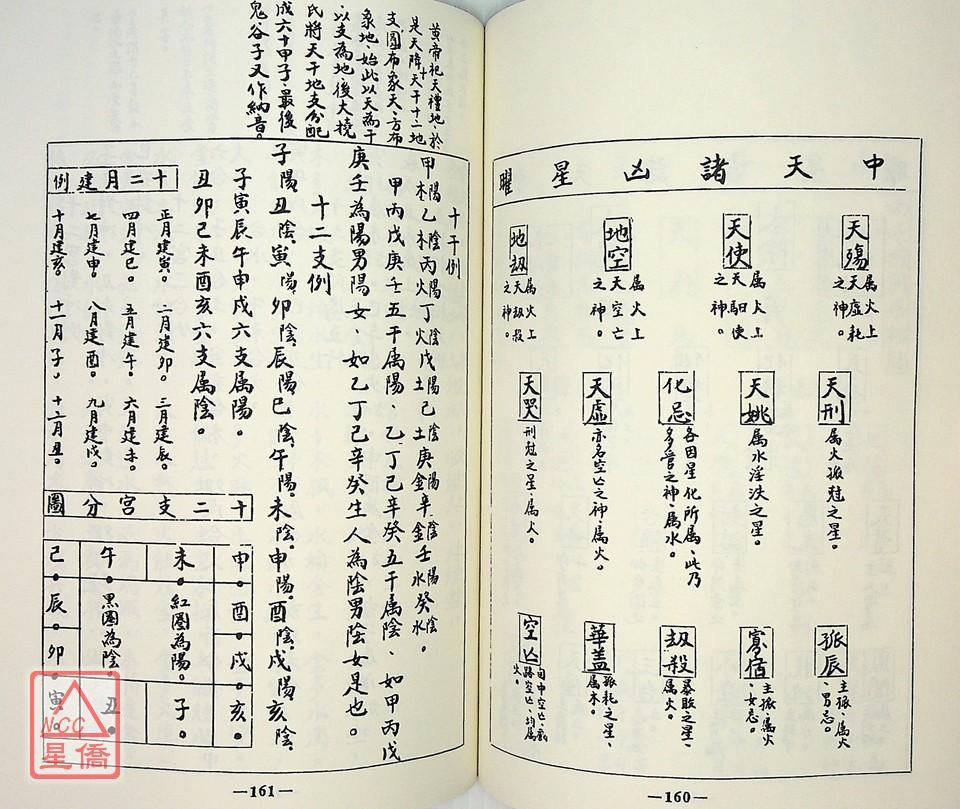 中天諸凶星曜
天殤
属火上
天虛耗
之神。
天使
属火上
天馹使
之神。
地空
属火上
天空亡
之神。
地刼
属火上
天刼殺
之神。
天刑
属火孤尅之星。
天姚
属水淫泆之星。
化忌
各因星化所属、此乃
多管之神、属水。
天虛
亦名空亡之神、属火。
天哭
刑尅之星、属火。
孤辰
主孤、属火
、男忌。
寡宿
主孤、属火
、女忌。
刼殺
暴敗之星、
属火。
華盖
孤耗之星、
属木。
空亡
旬中空亡、截
路空亡、均属
火。
—160—
黃帝祀天禮地、於
是天降十天干十二地
支圓布象天、方布
象地、始此以天為干
、以支為地、後大撓
氏將天干地支分配
成六十甲子、最後
鬼谷子又作納音。
十干例
甲陽木乙陰木丙陽火丁陰火戊陽土己陰土庚陽金辛陰金壬陽水癸陰水。
甲丙戊庚壬五干属陽、乙丁己辛癸五干属陰、如甲丙戊
庚壬為陽男陽女、如乙丁己辛癸生人為陰男陰女是也。
十二支例
子陽丑陰寅陽卯陰辰陽巳陰午陽未陰申陽酉陰戌陽亥陰
子寅辰午申戌六支属陽。
丑卯巳未酉亥六支属陰。
十二月建例
正月建寅。二月建卯。三月建辰。
四月建巳。五月建午。六月建未。
七月建申。八月建酉。九月建戌。
十月建亥。十一月子、十二月丑。
十二支宮分圖
申。酉。戌。亥。
未。紅圈為陽。子。
午。黑圈為陰。丑。
巳。辰。卯。寅。
—161—
NCC
星僑